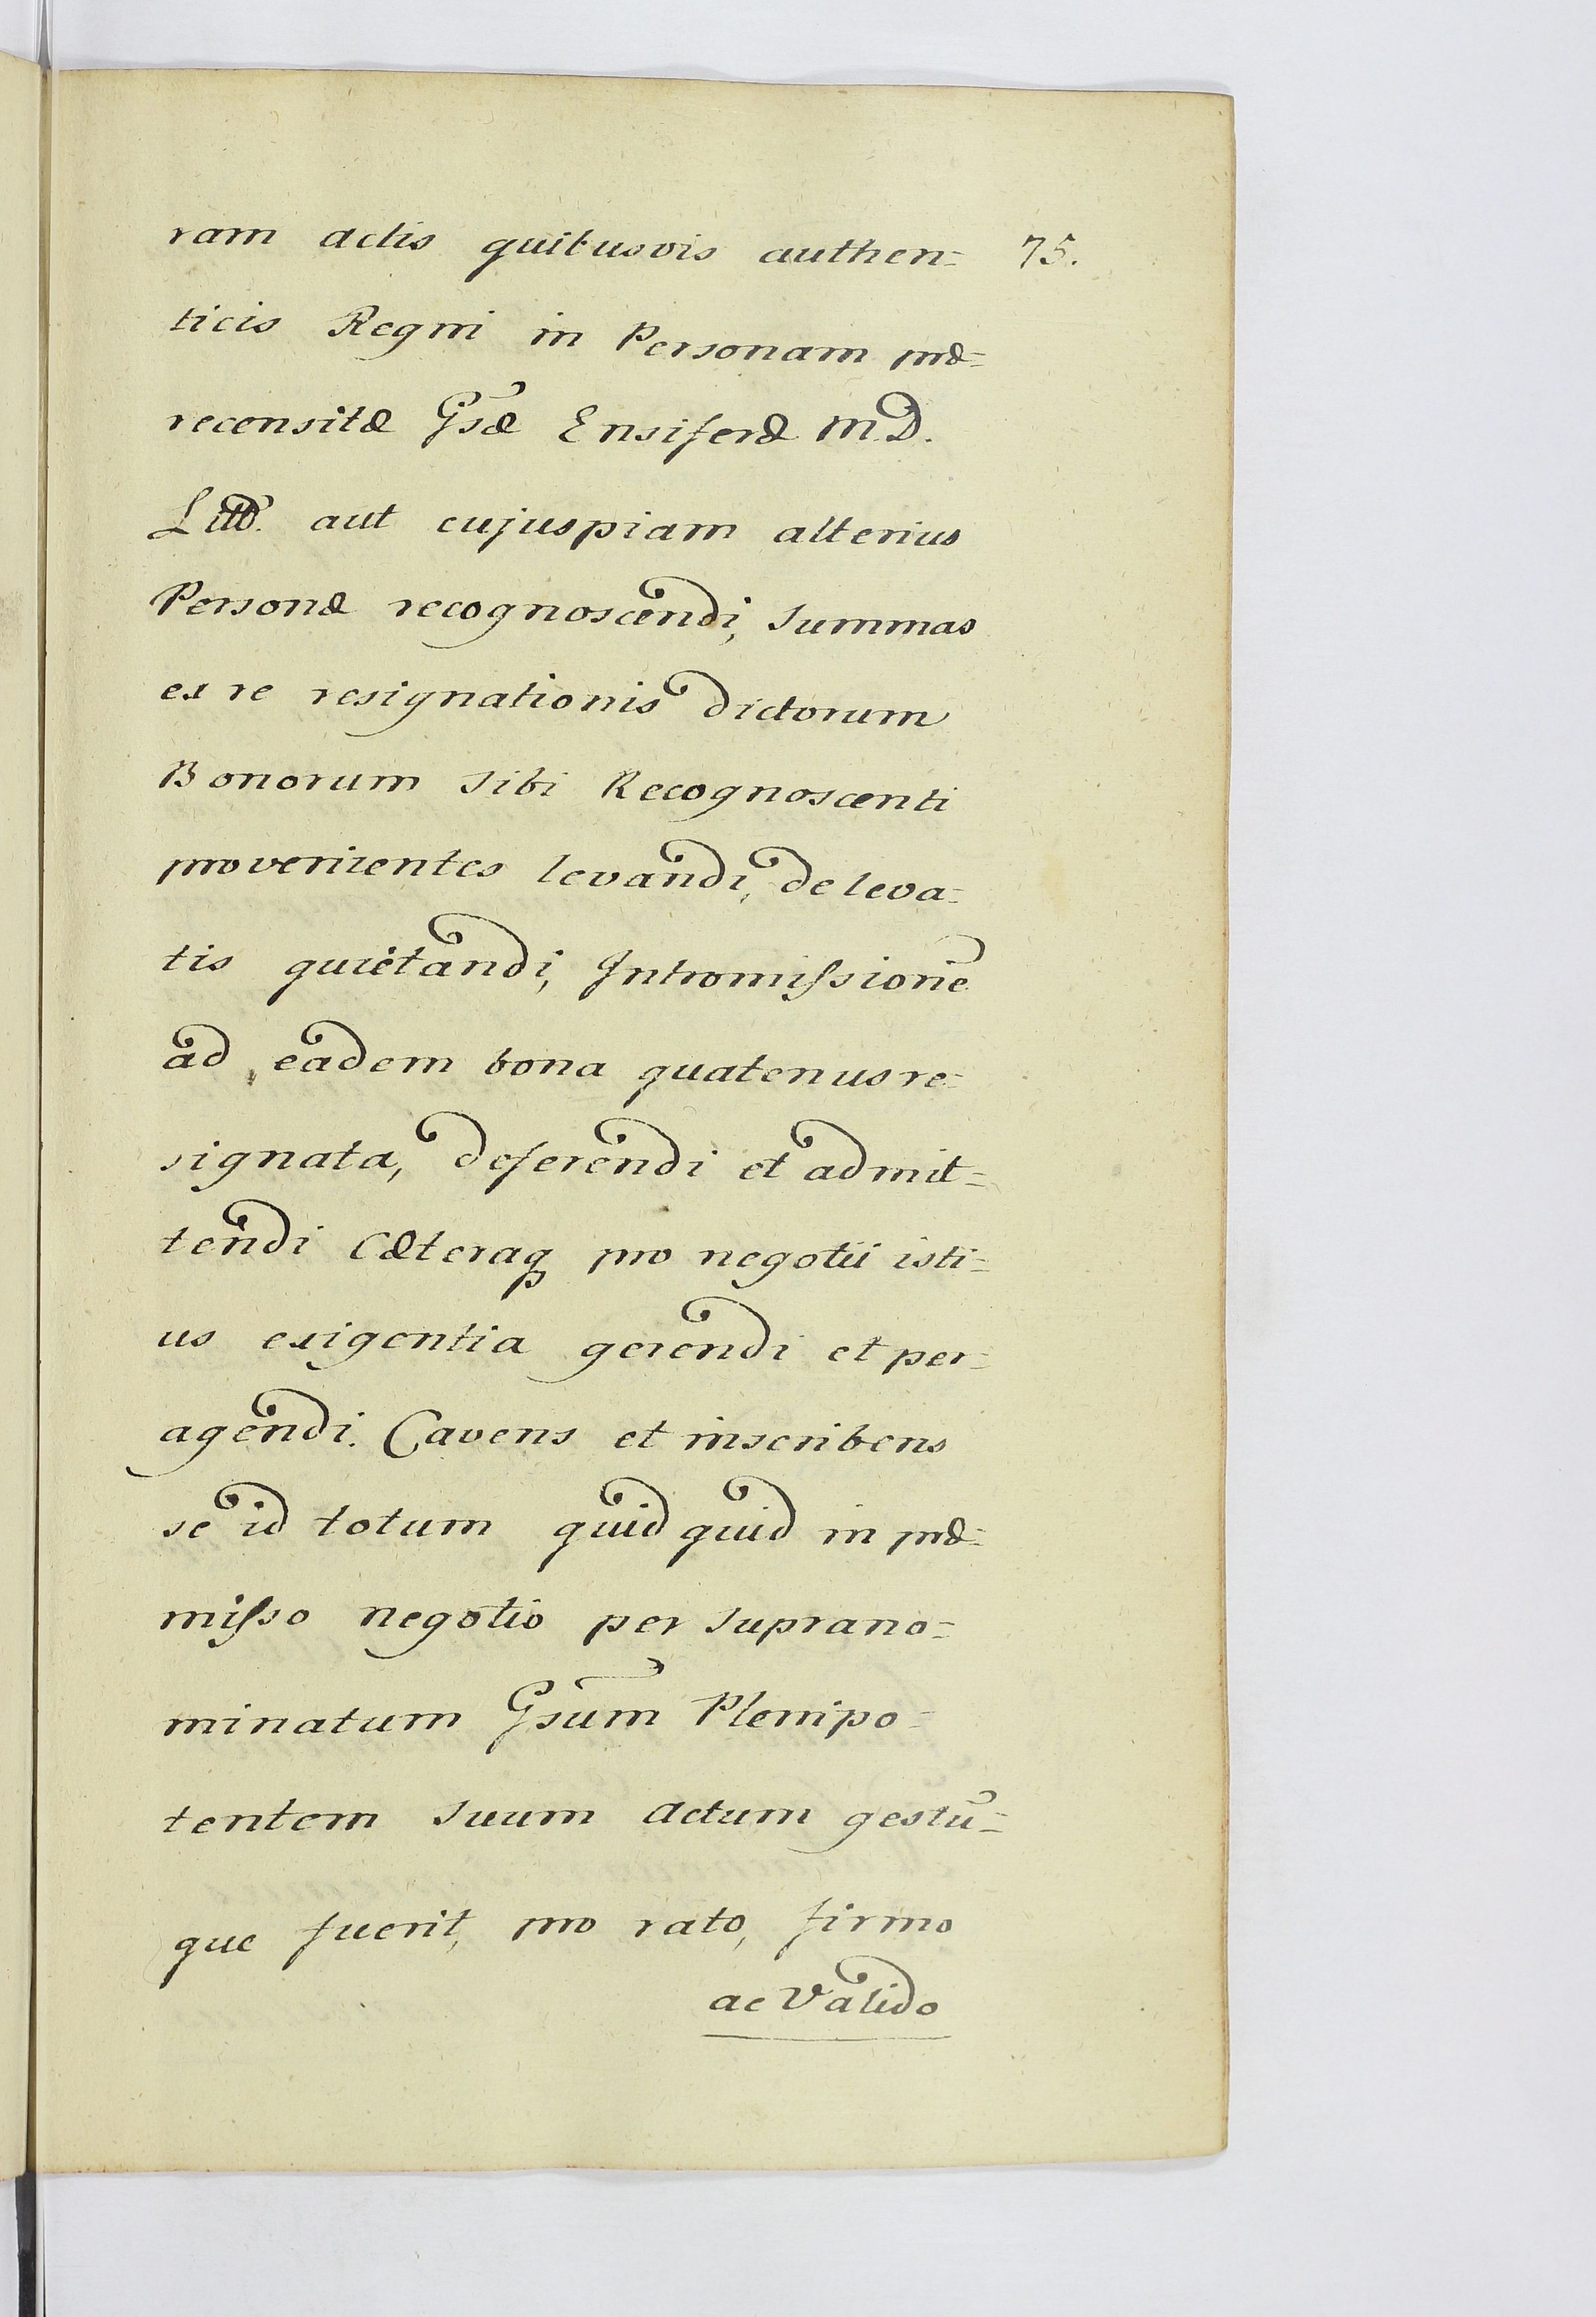 ram actis quibusvis authen= 75.
ticis Regni in Personam præ=
recensitæ Gsæ Ensiferæ M.D.
Litt. aut cujuspiam alterius
Personæ recognoscendi, summas
ex re resignationis dictorum
Bonorum sibi Recognoscenti
provenientes levandi, de leva=
tis quietandi, Intromissione
ad eadem bona quatenus re=
signata, deferendi et admit=
tendi Cæteraq pro negotii isti=
us exigentia gerendi et per=
agendi. Cavens et inscribens
se id totum quid quid in præ=
misso negotio per suprano=
minatum Gsum Plenipo=
tentem suum actum gestū=
que fuerit, pro rato, firmo
ac Valido